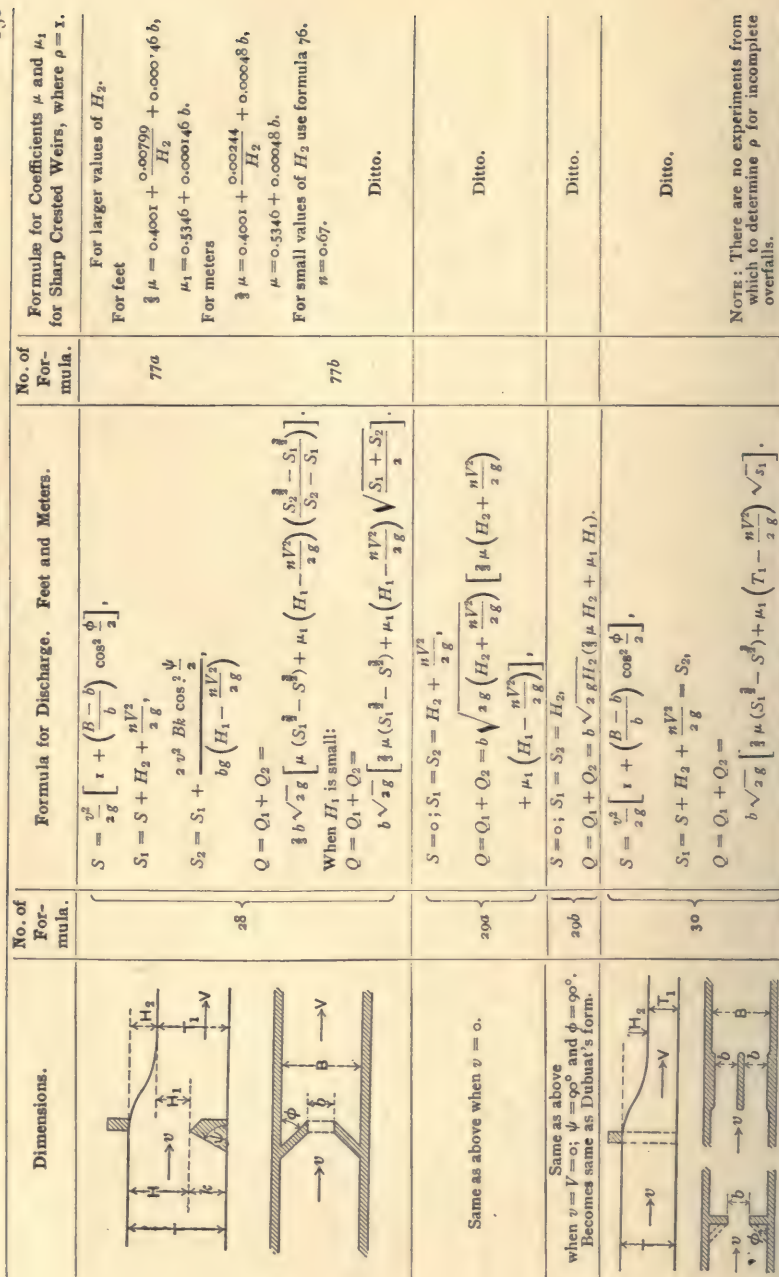 Dimensions.
No. of For-
mula.
Formula for Discharge. Feet and Meters.
No. of
For-
mula.
Formulæ for Coefficients μ and μ₁
for Sharp Crested Weirs, where ρ = 1.
H
k
H₁
H₂
T₁
→v
→V
ψ
φ
b
B
→v
→V
28
S = v²/2g [1 + ((B − b)/b) cos² φ/2],
S₁ = S + H₂ + nV²/2g,
S₂ = S₁ + 2v² Bk cos² ψ/2 / bg (H₁ − nV²/2g)
Q = Q₁ + Q₂ =
⅔ b√2g [μ (S₁^{3/2} − S^{3/2}) + μ₁ (H₁ − nV²/2g) ((S₂^{3/2} − S₁^{3/2})/(S₂ − S₁))].
When H₁ is small:
Q = Q₁ + Q₂ =
b√2g [⅔ μ (S₁^{3/2} − S^{3/2}) + μ₁ (H₁ − nV²/2g) √((S₁ + S₂)/2)].
77a
77b
For larger values of H₂.
For feet
⅔ μ = 0.4001 + 0.00799/H₂ + 0.000146 b,
μ₁ = 0.5346 + 0.000146 b.
For meters
⅔ μ = 0.4001 + 0.00244/H₂ + 0.00048 b,
μ = 0.5346 + 0.00048 b.
For small values of H₂ use formula 76.
n = 0.67.
Ditto.
Same as above when v = 0.
29a
S = 0; S₁ = S₂ = H₂ + nV²/2g,
Q = Q₁ + Q₂ = b√(2g (H₂ + nV²/2g)) [⅔ μ (H₂ + nV²/2g)
+ μ₁ (H₁ − nV²/2g)],
Ditto.
Same as above
when v = V = 0; ψ = 90° and φ = 90°.
Becomes same as Dubuat's form.
29b
S = 0; S₁ = S₂ = H₂,
Q = Q₁ + Q₂ = b√2gH₂ (⅔ μ H₂ + μ₁ H₁).
Ditto.
→v
H₂
T₁
→V
→v
φ
b
→v
b
b
B
→V
30
S = v²/2g [1 + ((B − b)/b) cos² φ/2],
S₁ = S + H₂ + nV²/2g = S₂,
Q = Q₁ + Q₂ =
b√2g [⅔ μ (S₁^{3/2} − S^{3/2}) + μ₁ (T₁ − nV²/2g) √s₁].
Ditto.
NOTE: There are no experiments from
which to determine ρ for incomplete
overfalls.